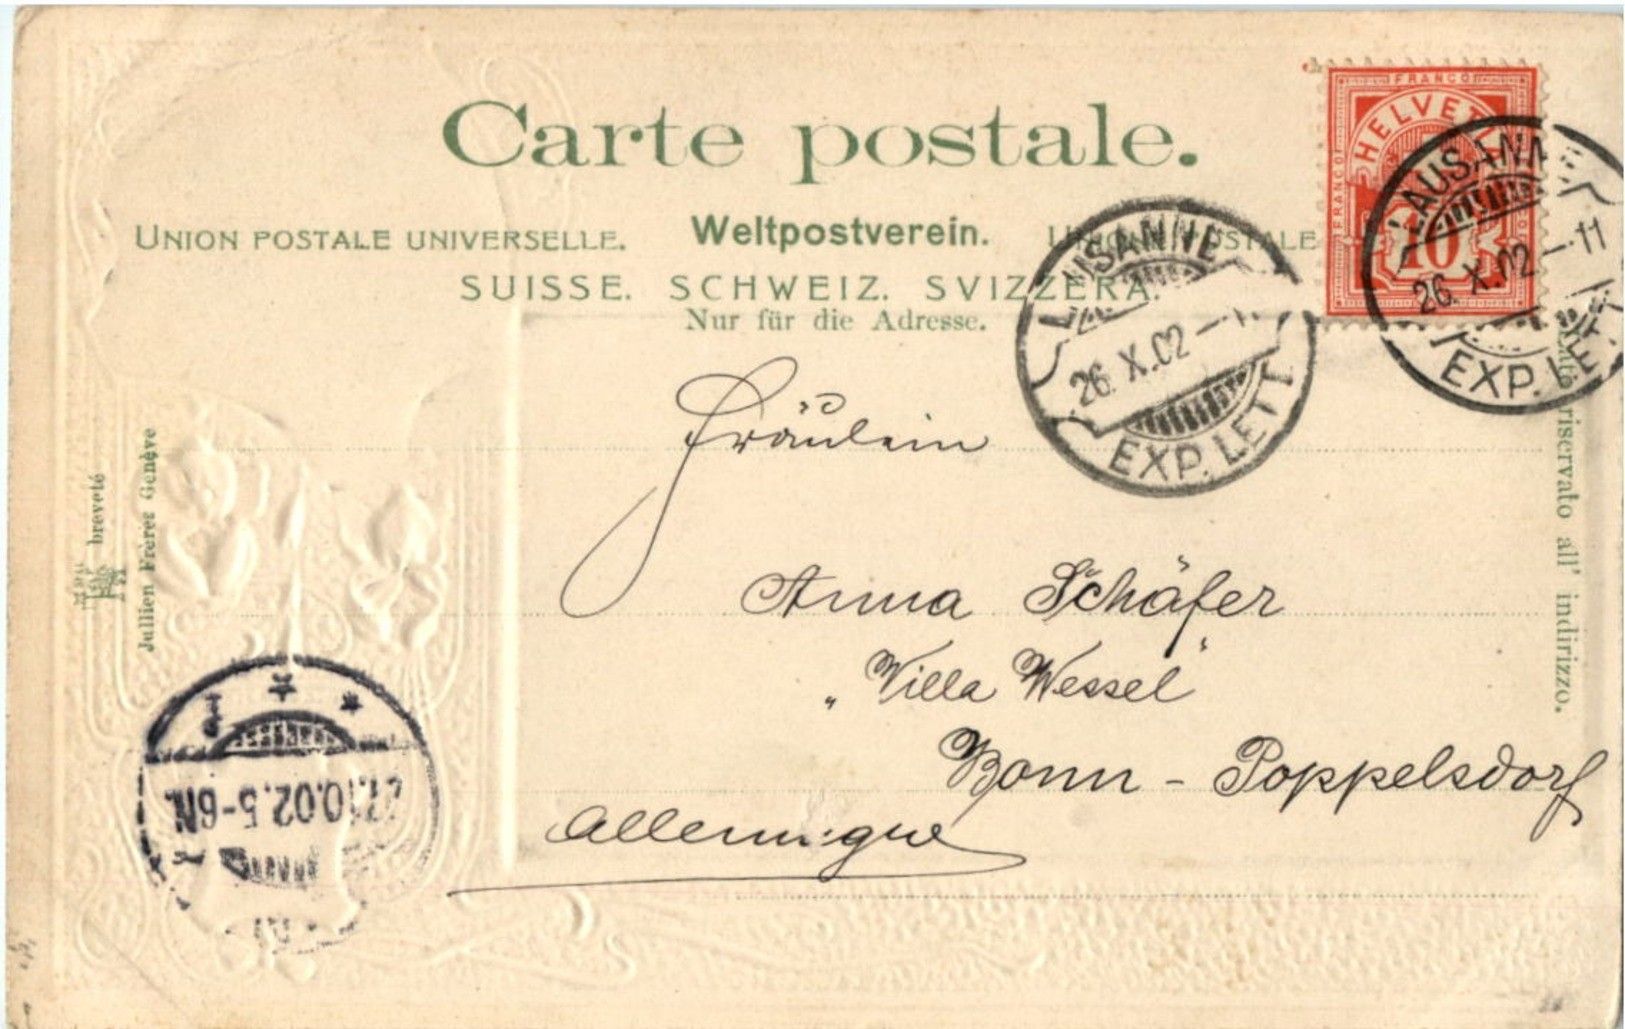 Carte postale.
UNION POSTALE UNIVERSELLE. Weltpostverein. POSTALE
SUISSE. SCHWEIZ. SVIZZERA.
Nur für die Adresse.
FRANCO
HELVETIA
FRANCO
10
LAUSANNE
26. X. 02 – 11
EXP. LETT.
LAUSANNE
26. X. 02 –
EXP. LETT.
riservato all' indirizzo.
breveté
Jullien Frères Genève
Fräulein
Anna Schäfer
„Villa Wessel"
Bonn - Poppelsdorf
Allemagne
10.02.5-6N.